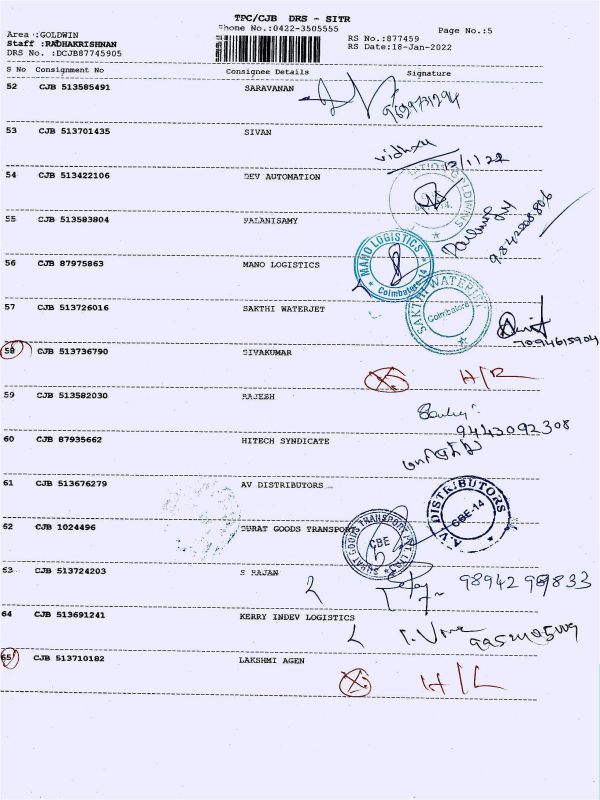 TPC/CJB DRS - SITR
Area :GOLDWIN
Phone No.:0422-3505555
Page No.:5
Staff :RADHAKRISHNAN
RS No.:877459
DRS No. :DCJB87745905
RS Date:18-Jan-2022
S No Consignment No Consignee Details Signature
52 CJB 513585491 SARAVANAN
53 CJB 513701435 SIVAN
Vidhya
54 CJB 513422106 DEV AUTOMATION
55 CJB 513583804 PALANISAMY
56 CJB 87975863 MANO LOGISTICS
MANO LOGISTICS
Coimbatore-14
57 CJB 513726016 SAKTHI WATERJET
SAKTHI WATERJET
Coimbatore
7094615904
58 CJB 513736790 SIVAKUMAR
H/R
59 CJB 513582030 RAJESH
9443092308
60 CJB 87935662 HITECH SYNDICATE
61 CJB 513676279 AV DISTRIBUTORS
A.V. DISTRIBUTORS
CBE-14
62 CJB 1024496 SURAT GOODS TRANSPORT
SURAT GOODS TRANSPORT PVT. LTD.
CBE
63 CJB 513724203 S RAJAN
64 CJB 513691241 KERRY INDEV LOGISTICS
65 CJB 513710182 LAKSHMI AGEN
H/L